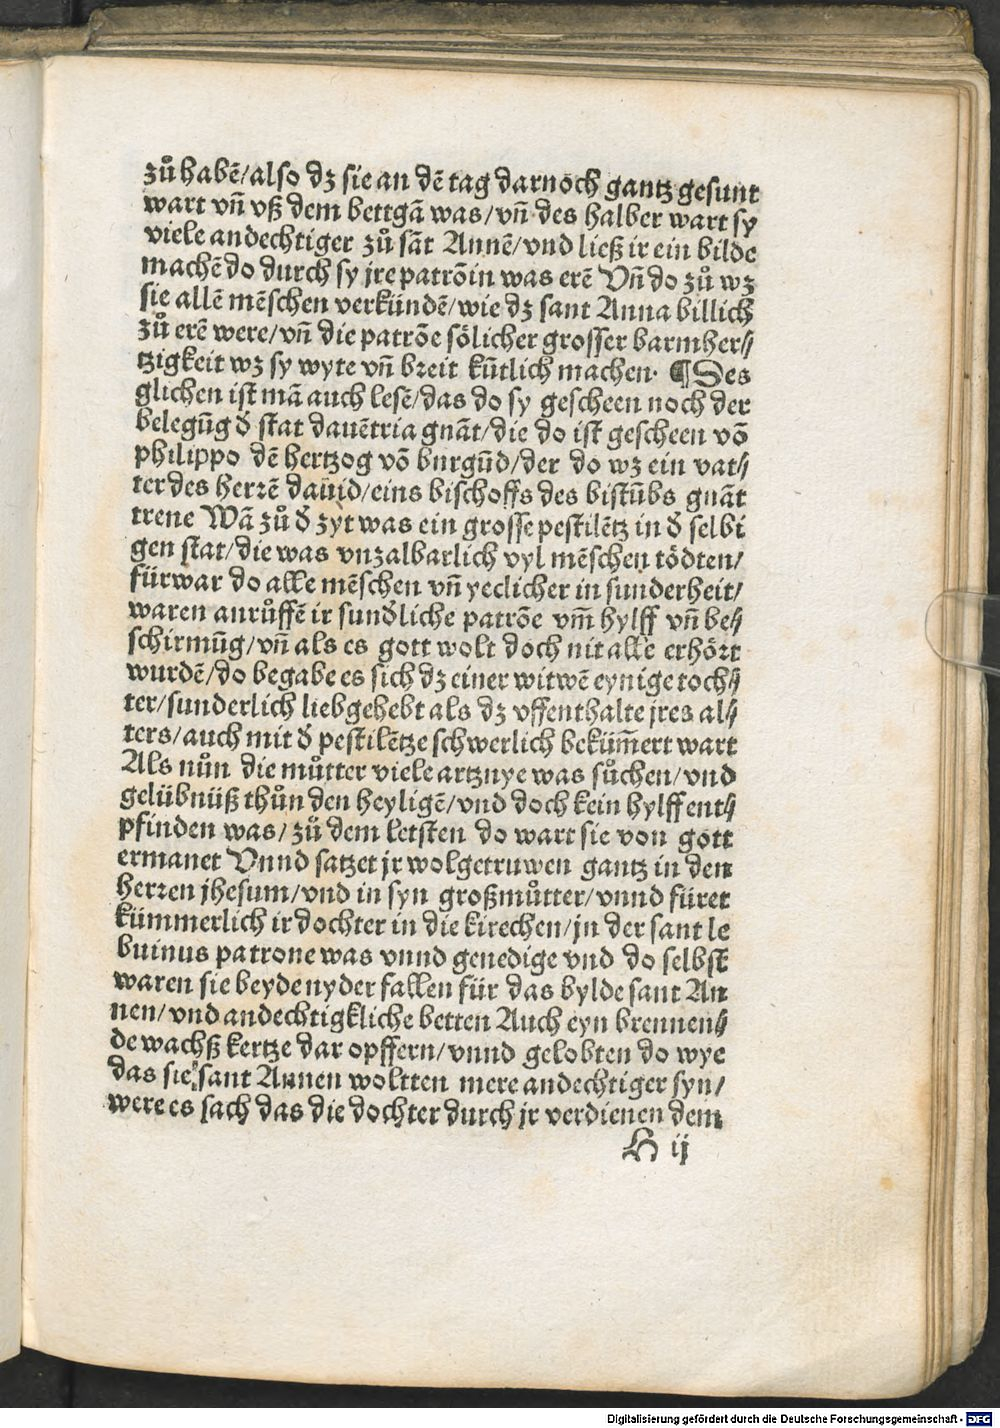 zů habē/also dz sie an dē tag darnoch gantz gesunt
wart vñ vß dem bettgā was/vñ des halber wart sy
viele andechtiger zů sāt Annē/vnd ließ ir ein bilde
machē do durch sy jre patrōin was erē Vñ do zů wz
sie allē mēschen verkündē/wie dz sant Anna billich
zů erē were/vñ die patrōe sölicher grosser barmher⸗
tzigkeit wz sy wyte vñ breit kūtlich machen· ¶Des
glichen ist mā auch lesē/das do sy gescheen noch der
belegūg d̓ stat dauētria gnāt/die do ist gescheen vō
philippo dē hertzog vō burgūd/der do wz ein vat⸗
ter des herrē dauid/eins bischoffs des bistūbs gnāt
trene Wā zů d̓ zyt was ein grosse pestilētz in d̓ selbi
gen stat/die was vnzalbarlich vyl mēschen tödten/
fürwar do alle mēschen vñ yeclicher in sunderheit/
waren anrůffē ir sund̓liche patrōe vm̄ hylff vñ be⸗
schirmūg/vñ als es gott wolt doch nit alle erhört
wurdē/do begabe es sich dz einer witwē eynige toch⸗
ter/sunderlich liebgehebt als dz vffenthalte jres al⸗
ters/auch mit d̓ pestilētze schwerlich beküm̄ert wart
Als nůn die můtter viele artznye was sůchen/vnd
gelübnüß thůn den heyligē/vnd doch kein hylff ent⸗
pfinden was/zů dem letsten do wart sie von gott
ermanet Vnnd satzet jr wolgetruwen gantz in den
herren jhesum/vnd in syn großmůtter/vnnd füret
kümmerlich ir dochter in die kirechen/jn der sant le
buinus patrone was vnnd genedige vnd do selbst
waren sie beyde nyder fallen für das bylde sant An
nen/vnd andechtigkliche betten Auch eyn brennen⸗
de wachß kertze dar opffern/vnnd gelobten do wye
das sie sant Annen woltten mere andechtiger syn/
were es sach das die dochter durch jr verdienen dem
H ij
Digitalisierung gefördert durch die Deutsche Forschungsgemeinschaft - DFG